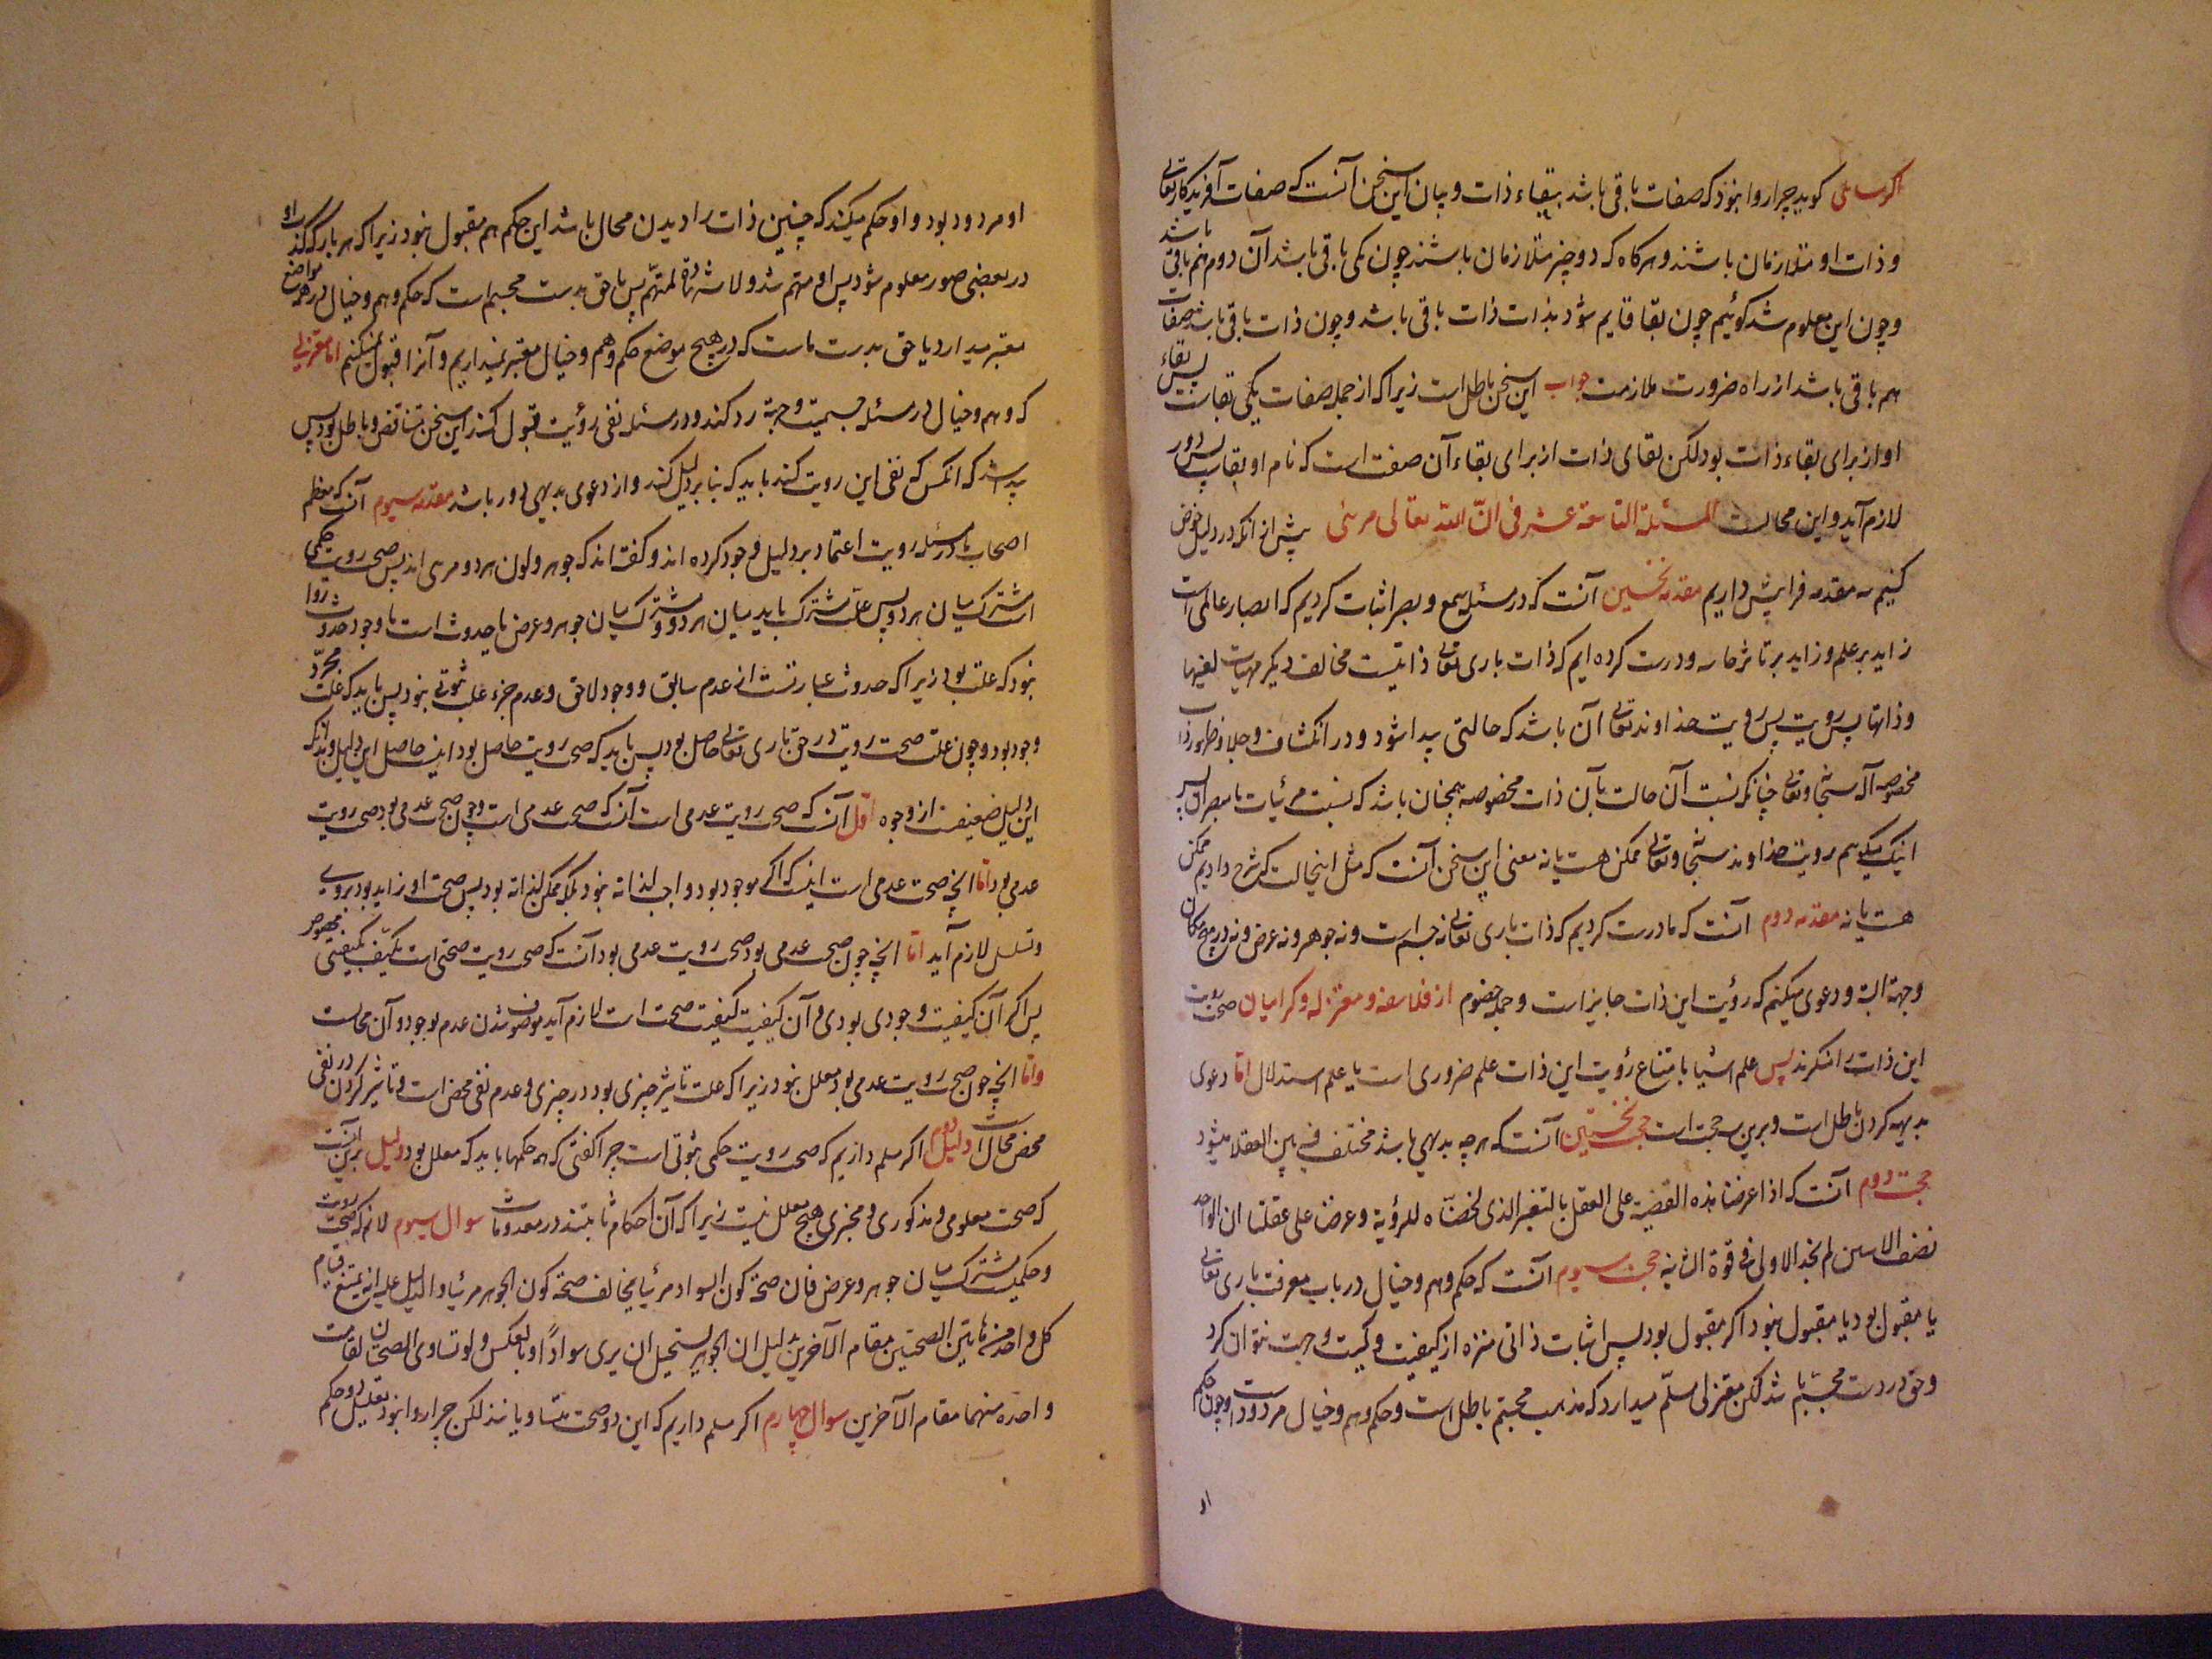 اکر سائلی کوید چرا روا نبود که صفات باقی باشد ببقاء ذات و بیان این سخن آنست که صفات آفریدکار تعالی
و ذات او متلازمان باشند و هرکاه که دو چیز متلازمان باشند چون یکی باقی باشد آن دوم هم باقی باشد
و چون این معلوم شد کوئیم چون بقا قایم شود بذات ذات باقی باشد و چون ذات باقی باشد صفات
هم باقی باشد از راه ضرورت ملازمت جواب این سخن باطل است زیرا که از جمله صفات یکی بقاست پس بقاء
او از برای بقاء ذات بود لکن بقای ذات از برای بقاء آن صفت است که نام او بقاست پس دور
لازم آید و این محالست المسئلة التاسعة عشر فی انّ الله تعالی مرئی پیش از آنکه در دلیل خوض
کنیم سه مقدمه فرا پیش داریم مقدمه نخستین آنست که در مسئله سمع و بصر اثبات کردیم که ابصار عالمی است
زاید بر علم و زاید بر تاثر حاسه و درست کرده ایم که ذات باری تعالی ذاتیست مخالف دیکر مهیات لعینها
و ذاتها پس رویت خداوند تعالی آن باشد که حالتی پیدا شود و در انکشاف و جلا و ظهور ذات
مخصوصه آله سبحانه و تعالی چنانکه نسبت آن حالت بآن ذات مخصوصه همچنان باشد که نسبت مرئیات با مبصرات پس
اینک میکوییم رویت خداوند سبحانه و تعالی ممکن هست یا نه معنی این سخن آنست که مثل اینحالت که شرح دادیم ممکن
هست یا نه مقدمه دوم آنست که ما درست کردیم که ذات باری تعالی نه جسم است و نه جوهر و نه عرض و نه در هیچ مکان
و جهة البته و دعوی میکنیم که رؤیت این ذات جایز است و جمله خصوم از فلاسفه و معتزله و کرامیان صحت رویت
این ذات را منکرند پس علم اشیا بامتناع رؤیت این ذات علم ضروری است یا علم استدلال امّا دعوی
بدیهه کردن باطل است و برین سه حجت است حجت نخستین آنست که هر چه بدیهی باشد مختلف فیه بین العقلا نشود
حجت دوم آنست که اذا عرضنا هذه القضیة علی العقل بالتفسیر الذی لخصناه للرؤیة و عرضنا علی عقلنا ان الواحد
نصف الاثنین لم نجد الاولی فی قوة الثانیه حجت سیوم آنست که حکم وهم و خیال در باب معرفت باری تعالی
یا مقبول بود یا مقبول نبود اکر مقبول بود پس اثبات ذاتی منزه از کیفیت و کمیت و جهت نتوان کرد
و حق در دست مجسّم باشد لکن معتزلی مسلّم میدارد که مذهب مجسّم باطل است و حکم وهم و خیال مردود است و چون حکم
او
او مردود بود و او حکم میکند که چنین ذات را دیدن محال باشد این حکم هم مقبول نبود زیرا که هر بار که کذب او
در بعضی صور معلوم شود پس او متهم شد و لا شهادة لمتّهم پس یا حق بدست مجسم است که حکم وهم و خیال در همه مواضع
معتبر میدارد یا حق بدست ماست که در هیچ موضع حکم وهم و خیال معتبر نمیداریم و آنرا قبول نمیکنیم اما معتزلی
که وهم و خیال در مسئله جسمیت و جهة رد کند و در مسئله نفی رؤیت قبول کند این سخن متناقض و باطل بود پس
پیدا شد که آنکس که نفی این رویت کند باید که بنا بر دلیل کند و از دعوی بدیهی دور باشد مقدمه سیوم آنست که معظم
اصحاب ما در مسئله رویت اعتماد بر دلیل وجود کرده اند و کفته اند که جوهر و لون هر دو مرئی اند پس صحت رویت حکمی
است مشترک میان هر دو پس علت مشترک باید میان هر دو و مشترک میان جوهر و عرض یا حدوث است یا وجود حدوث روا
نبود که علت بود زیرا که حدوث عبارتست از عدم سابق و وجود لاحق و عدم جزء علت ثبوتی نبود پس باید که علت مجرّد
وجود بود و چون علت صحت رویت در حق باری تعالی حاصل بود پس باید که صحت رویت حاصل بود اینست حاصل این دلیل و بدانکه
این دلیل ضعیفست از وجوه اوّل آنکه صحت رویت عدمی است آنکه صحت عدمی است و چون صحت عدمی بود صحت رویت
عدمی بود امّا آنچه صحت عدمی است اینست که اکر موجود بود واجب لذاته نبود بلکه ممکن لذاته بود پس صحت او زاید بود بر وی
و تسلسل لازم آید امّا آنچه چون صحت عدمی بود صحت رویت عدمی بود آنست که صحت رویت صحتی است مکیّف بکیفیتی مخصوص
پس اکر آن کیفیت وجودی بودی و آن کیفیت کیفیت صحت است لازم آید موصوف شدن عدم بوجود و آن محالست
و امّا آنچه چون صحت رویت عدمی بود معلل نبود زیرا که علت تاثیر چیزی بود در چیزی و عدم نفی محض است و تاثیر کردن در نفی
محض محال است دلیل دوم اکر مسلم داریم که صحت رویت حکمی ثبوتی است چرا کفتی که همه حکمها باید که معلل بود و دلیل برین آنست
که صحت معلومی و مذکوری و مخبری هیچ معلل نیست زیرا که آن احکام ثابتند در معدومات سوال سیوم لانم که صحت رویت
حکمیست مشترک میان جوهر و عرض فان صحة کون السواد مرئیا یخالف صحة کون الجوهر مرئیا و الدلیل علیه انه یمتنع قیام
کل واحد من هاتین الصحتین مقام الآخر بدلیل ان الجوهر یستحیل ان یری سوادًا و بالعکس و لو تساوی الصحتان لقامت
واحدة منهما مقام الآخرین سوال چهارم اکر مسلم داریم که این دو صحت متساویانند لکن چرا روا نبود تعلیل دو حکم